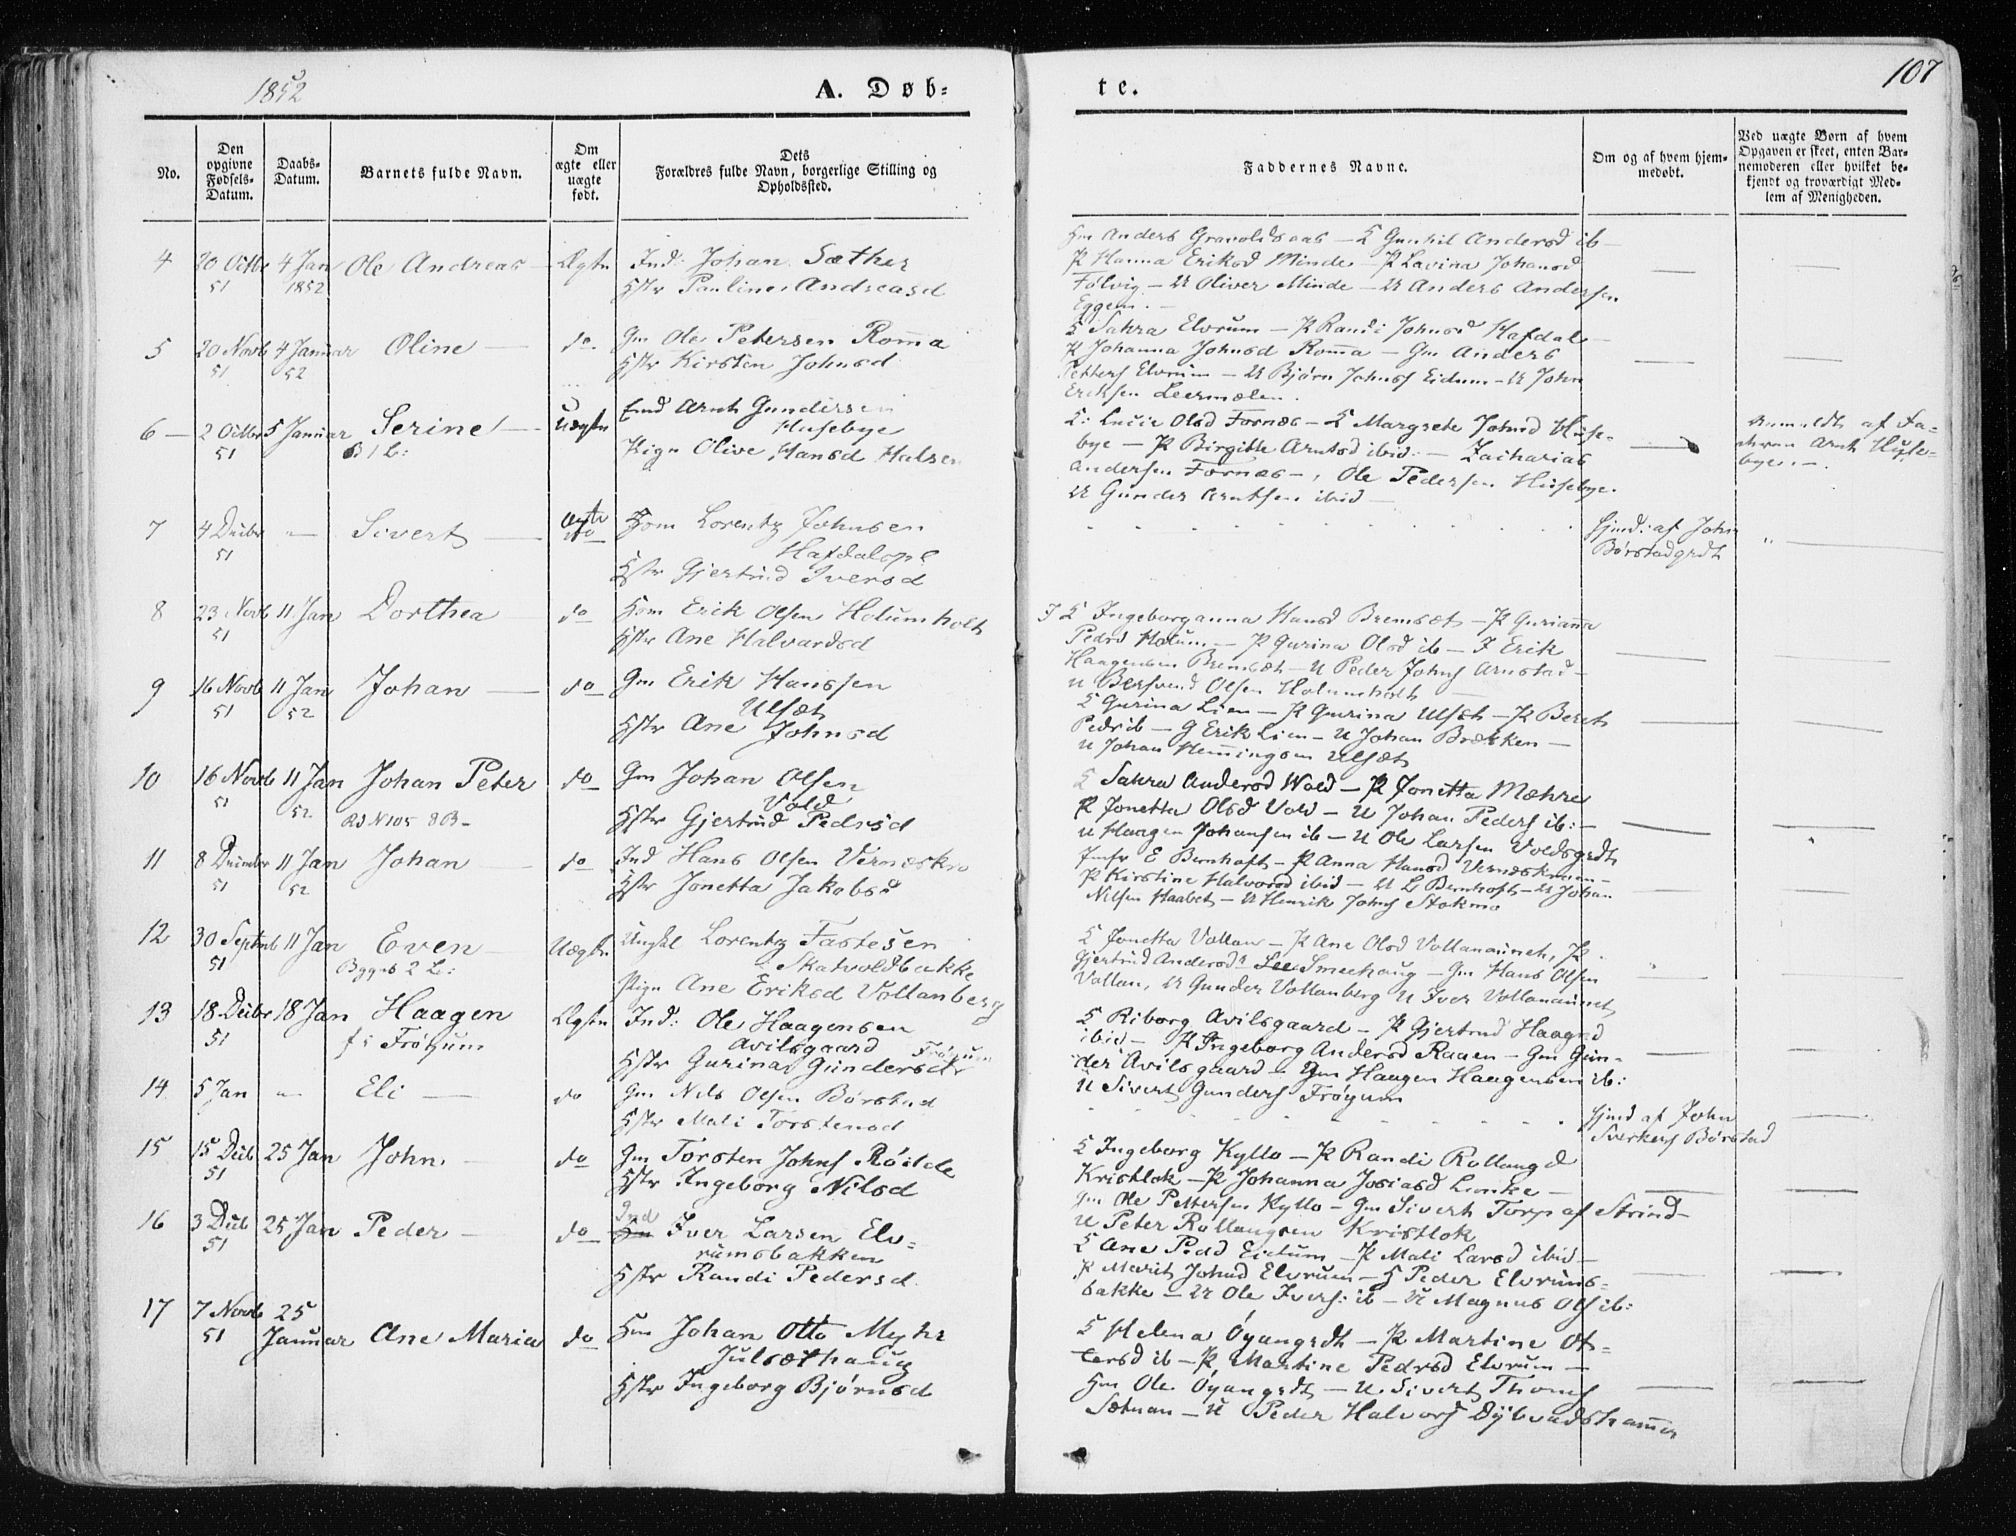 1852
A. Døb=
te.
107
No.
Den opgivne Fødsels-Datum.
Daabs-Datum.
Barnets fulde Navn.
Om ægte eller uægte født.
Dets Forældres fulde Navn, borgerlige Stilling og Opholdssted.
Faddernes Navne.
Om og af hvem hjemmedøbt.
Ved uægte Børn af hvem Opgaven er skeet, enten Barnemoderen eller hvilket bekjendt og troværdigt Medlem af Menigheden.
4 20 Octbr 51 4 Jan 1852 Ole Andreas Ægte Ind: Johan Sæther
Hstr Pauline Andreasd
Gm Anders Gravoldsaas — Gunhil Andersd ib —
P Hanna Eriksd Minde — P Lavina Johansd
Følvig — U Oliver Minde — U Anders Andersen
Eggen. —
5 20 Novb 51 4 Januar 52 Oline — do Gm Ole Petersen Roma
Hstr Kirsten Johnsd
Sahra Elvrum — P Randi Johnsd Hafdal —
P Johanna Johnsd Roma — Gm Anders
Petters Elvrum — U Bjørn Johns Eidum — U John
Eriksen Leermælen.
6 — 2 Octbr 51 5 Januar Serine — Uægte Arnt Gundersen
Husebye
Pige Olive Hansd Halsen
Lucie Olsd Fornæs — Margrete Johnsd Huse-
bye — P Birgitte Arntsd ibid: — Zacharias
Andersen Fornæs —, Ole Pedersen Husebye.
U Gunder Arntsen ibid —
Anmeldt af Fa-
deren Arnt Huse-
bye. —
7 4 Decbr 51 — Sivert — Ægte do Lorentz Johnsen
Hafdalspl
Hstr Gjertrud Iversd
Hjmd: af John
Børstadgrdt
8 23 Novb 51 11 Jan Dorthea do Erik Olsen Holumholt
Hstr Ane Halvardsd
Ingeborganna Hansd Bremsæt — P Gurianna
Pedrd Holum — P Gurina Olsd ib — Erik
Haagensen Bremsæt — U Peder Johns Arnstad —
U Bersvend Olsen Holumholt —
9 16 Novb 51 11 Jan 52 Johan — do Gm Erik Hanssen
Ulsæt
Hstr Ane Johnsd
Gurina Lien — P Gurina Ulsæt — P Beret
Pedr ib — G Erik Lien — U Johan Brækken —
U Johan Hemingsen Ulsæt
10 16 Novb 51 11 Jan 52 Johan Peter do Gm Johan Olsen
Vold
Hstr Gjertrud Pedrsd
Sahra Andersd Wold — P Jonetta Mæhre
P Jonetta Olsd Vold — U Johan Peders ib: —
U Haagen Johansen ib — U Ole Larsen Voldsgrdt
11 8 Decimber 51 11 Jan 52 Johan — do Ind Hans Olsen Vernæskr
Hstr Jonetta Jakobsd
E Bernhoft — P Anna Hansd Vernæskr
P Kirstine Halvorsd ibid — U L Bernhoft — U Johan
Nilsen Haabet — U Henrik Johns Stokmo
12 30 Septmb 51 11 Jan Even — Uægte Ungkl Lorentz Fastesen
Skatvoldbakke
Pige Ane Eriksd Vollanberg
Jonetta Vollan — P Ane Olsd Vollanaunet, P.
Gjertrud Andersd Smeehaug — Gm Hans Olsen
Vollan, U Gunder Vollanberg U Iver Vollanaunet
13 18 Decbr 51 18 Jan Haagen
Frøyum Ægte Ind: Ole Haagensen
Avilsgaard Frøyum
Hstr Gurina Gundersdtr
Riborg Avilsgaard — P Gjertrud Haagnd
ibid — P Ingeborg Andersd Raaen — Gm Gun-
der Avilsgaard — Gm Haagen Haagensen ib:
U Sivert Gunders Frøyum
14 5 Jan — Eli — do Gm Nils Olsen Børstad
Hstr Mali Torstensd
Hjmd af John
Sverkers Børstad
15 15 Decb 51 25 Jan John. — do Gm Torsten Johns
Hstr Ingeborg Nilsd
Ingeborg Kyllo — P Randi Rollaugd
Kristlok — P Johanna Josiasd Lunke —
Gm Ole Pettersen Kyllo — Gm Sivert Torp af Strind —
U Peter Rollaugsen Kristlok
16 3 Decb 51 25 Jan Peder — do Ind Iver Larsen Elv=
rumsbakken
Hstr Randi Pedersd.
Ane Pedd Eidum — P Mali Larsd ibid —
P Marit Johnsd Elvrum — Peder Elvrums=
bakke — U Ole Ivers: ib — U Magnus Ols ib:
17 7 Novb 51 25 Januar Ane Maria do Johan Otto Myhr
Julsethaug
Hstr Ingeborg Bjørnsd
Helena Øyangrdt — P Martine Ot=
tersd ib — P Martine Pedrsd Elvrum —
Ole Øyangrdt — U. Sivert Thoms
Sætnan — U Peder Halvors Dybvadshamer